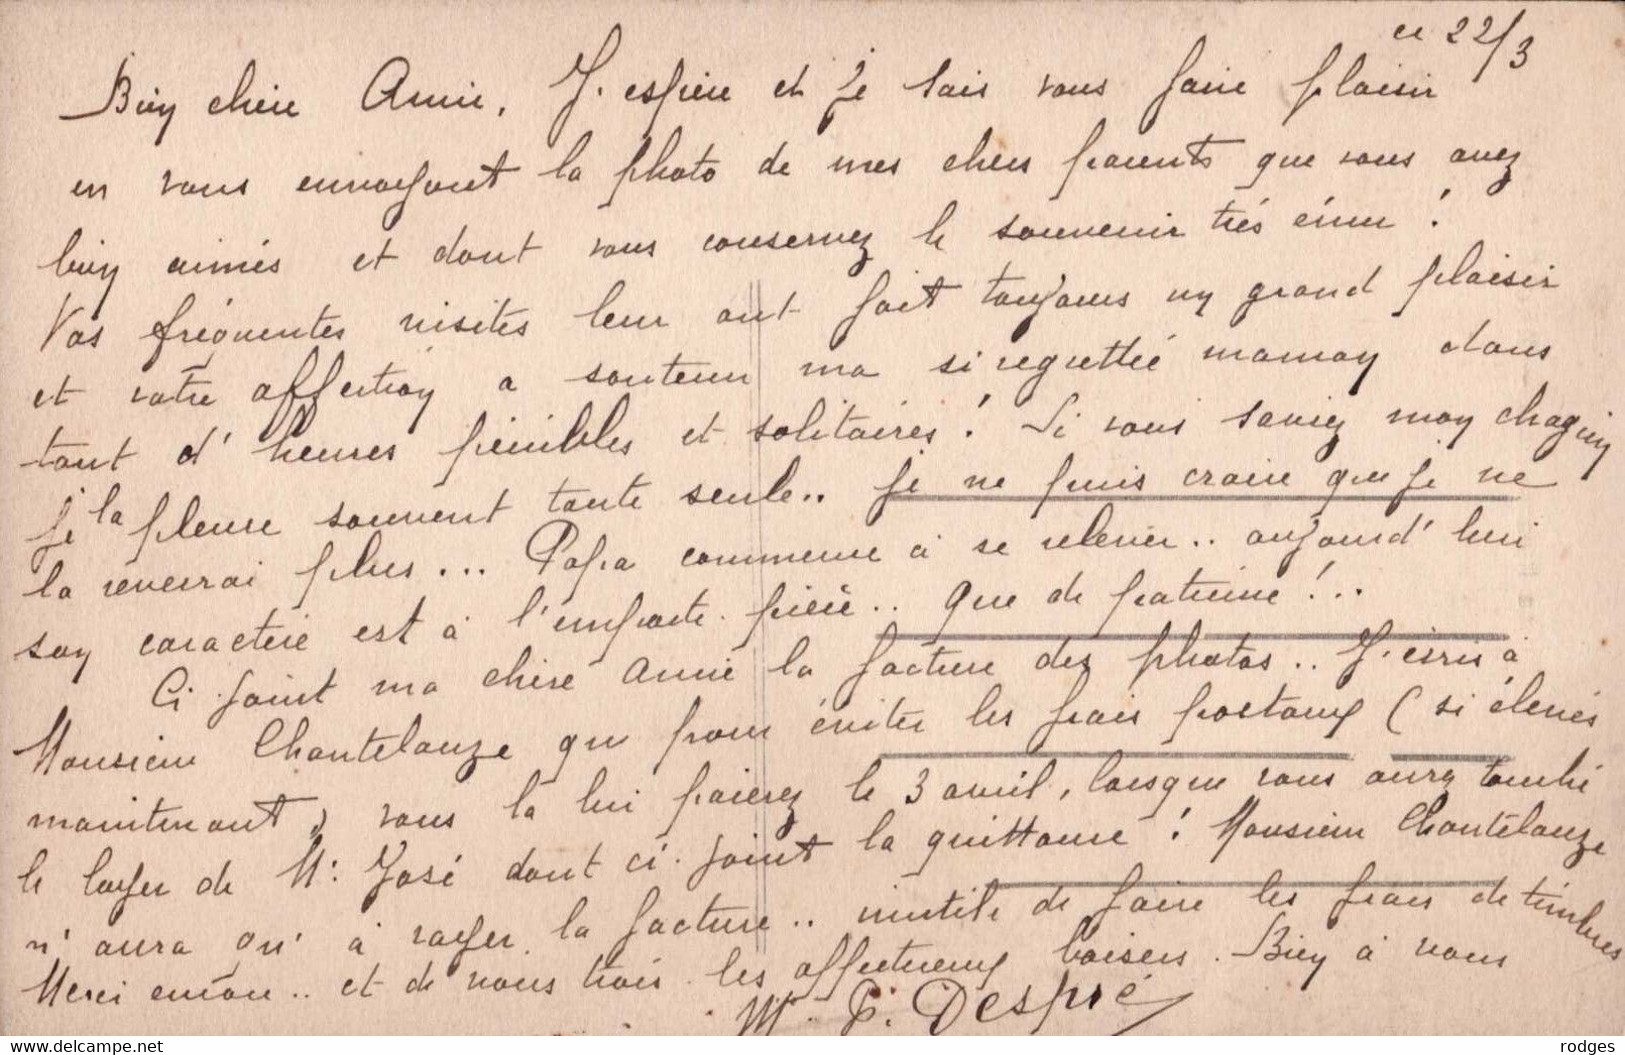 ce 22/3
Bien chère Amie, J'espère et je sais vous faire plaisir
en vous envoyant la photo de mes chers parents que vous avez
bien aimés et dont vous conservez le souvenir très ému !
Vos fréquentes visites leur ont fait toujours un grand plaisir
et votre affection a soutenu ma si regrettée maman dans
tant d'heures pénibles et solitaires ! Si vous saviez mon chagrin
je la pleure souvent toute seule.. je ne puis croire que je ne
la reverrai plus... Papa commence à se relever.. aujourd'hui
son caractère est à l'emporte pièce.. que de patience !..
Ci joint ma chère Amie la facture des photos.. J'écris à
Monsieur Chantelauze que pour éviter les frais postaux (si élevés
maintenant) vous la lui paierez le 3 avril, lorsque vous aurez touché
le loyer de Mr José dont ci-joint la quittance ! Monsieur Chantelauze
n'aura qu'à rayer la facture.. inutile de faire les frais de timbres
Merci encore.. et de nous trois les affectueux baisers. Bien à vous
M. E. Despré
delcampe.net
rodges